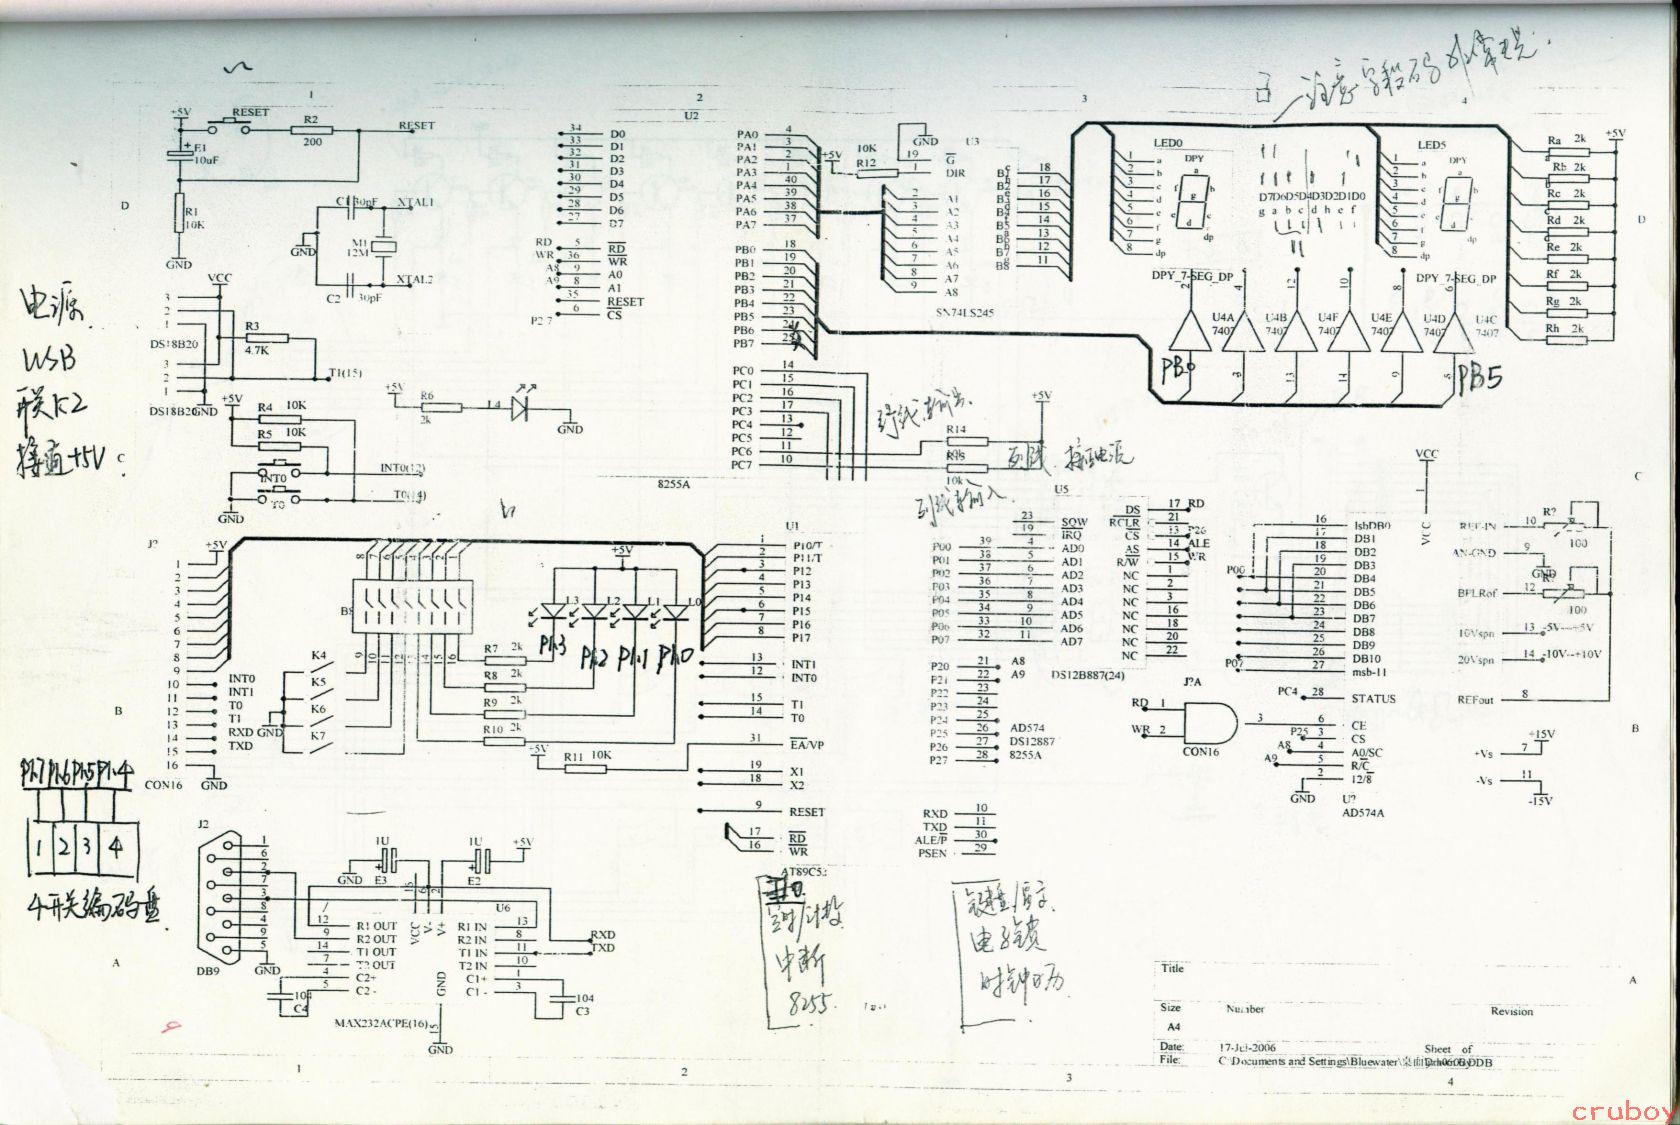 1
2
3
4
+5V
RESET
R2
200
RESET
E1
10uF
R1
10K
GND
D
C1 30pF
XTAL1
GND
M1
12M
C2
30pF
XTAL2
电源
USB
开关K2
接通+5V
VCC
3
2
1
DS18B20
R3
4.7K
3
2
1
T1(15)
DS18B20
GND
+5V
R4 10K
R5 10K
INT0
INT0(12)
T0
T0(14)
GND
C
+5V
R6
2k
L4
GND
U2
34 D0
33 D1
32 D2
31 D3
30 D4
29 D5
28 D6
27 D7
RD 5 RD
WR 36 WR
A8 9 A0
A9 8 A1
35 RESET
P2.7 6 CS
PA0 4
PA1 3
PA2 2
PA3 1
PA4 40
PA5 39
PA6 38
PA7 37
PB0 18
PB1 19
PB2 20
PB3 21
PB4 22
PB5 23
PB6 24
PB7 25
PC0 14
PC1 15
PC2 16
PC3 17
PC4 13
PC5 12
PC6 11
PC7 10
8255A
+5V
10K
R12
GND
U3
19 G
1 DIR
2 A1
3 A2
4 A3
5 A4
6 A5
7 A6
8 A7
9 A8
18
17
16
15
14
13
12
11
SN74LS245
LED0
DPY
1 a
2 b
3 c
4 d
5 e
6 f
7 g
8 dp
DPY_7-SEG_DP
D7D6D5D4D3D2D1D0
g a b c d h e f
LED5
DPY
DPY_7-SEG_DP
注意字程码
U4A
7407
U4B
7407
U4F
7407
U4E
7407
U4D
7407
U4C
7407
PB0
PB5
+5V
Ra 2k
Rb 2k
Rc 2k
Rd 2k
Re 2k
Rf 2k
Rg 2k
Rh 2k
D
R14
10k
R15
10k
+5V
J?
+5V
1
2
3
4
5
6
7
8
9
10 INT0
11 INT1
12 T0
13 T1
14 RXD
15 TXD
16
CON16
GND
GND
K4
K5
K6
K7
+5V
L3
L2
L1
L0
P1.3
P1.2
P1.1
P1.0
R7 2k
R8 2k
R9 2k
R10 2k
+5V
R11 10K
U1
1 P10/T
2 P11/T
3 P12
4 P13
5 P14
6 P15
7 P16
8 P17
13 INT1
12 INT0
15 T1
14 T0
31 EA/VP
19 X1
18 X2
9 RESET
17 RD
16 WR
P00 39
P01 38
P02 37
P03 36
P04 35
P05 34
P06 33
P07 32
P20 21 A8
P21 22 A9
P22 23
P23 24
P24 25
P25 26 AD574
P26 27 DS12887
P27 28 8255A
RXD 10
TXD 11
ALE/P 30
PSEN 29
U5
23 SQW
19 IRQ
4 AD0
5 AD1
6 AD2
7 AD3
8 AD4
9 AD5
10 AD6
11 AD7
DS 17 RD
RCLR 21
CS 13 P26
AS 14 ALE
R/W 15 WR
NC 1
NC 2
NC 3
NC 16
NC 18
NC 20
NC 22
DS12B887(24)
VCC
VCC
16 lsbDB0
17 DB1
18 DB2
19 DB3
20 DB4
21 DB5
22 DB6
23 DB7
24 DB8
25 DB9
26 DB10
27 msb-11
P00
P07
PC4 28 STATUS
6 CE
P25 3 CS
A8 4 A0/SC
A9 5 R/C
2 12/8
GND
U?
AD574A
REF-IN 10
R?
100
AN-GND 9
GND
BPLRof 12
100
10Vspn 13 -5V--+5V
20Vspn 14 -10V--+10V
REFout 8
+Vs 7 +15V
-Vs 11 -15V
J?A
RD 1
WR 2
3
CON16
C
B
B
P1.7 P1.6 P1.5 P1.4
1 2 3 4
4开关编码盘
J2
1
6
2
7
3
8
4
9
5
DB9
GND
1U
E3
GND
1U
E2
+5V
U6
12 R1 OUT
9 R2 OUT
14 T1 OUT
7 T2 OUT
4 C2+
5 C2 -
R1 IN 13
R2 IN 8
T1 IN 11
T2 IN 10
C1+ 1
C1 - 3
VCC
V-
V+
GND
15
GND
RXD
TXD
104
C4
104
C3
MAX232ACPE(16)
A
定时/计数
中断
8255
键盘/显示
电子锁
时钟日历
Title
Size
A4
Number
Revision
Date: 17-Jul-2006
Sheet of
A
1
2
3
4
cruboy